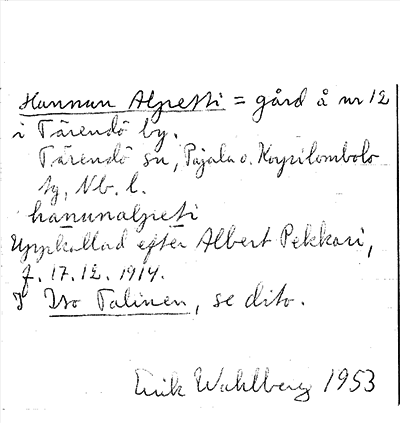 Hannun Alpetti = gård å nr 12
i Tärendö by.
Tärendö sn, Pajala o. Korpilombolo
tg, Nb. l.
hanunalpeti
Uppkallad efter Albert Pekkari,
f. 17.12. 1914.
I Iso Talinen, se dito.
Erik Wahlberg 1953